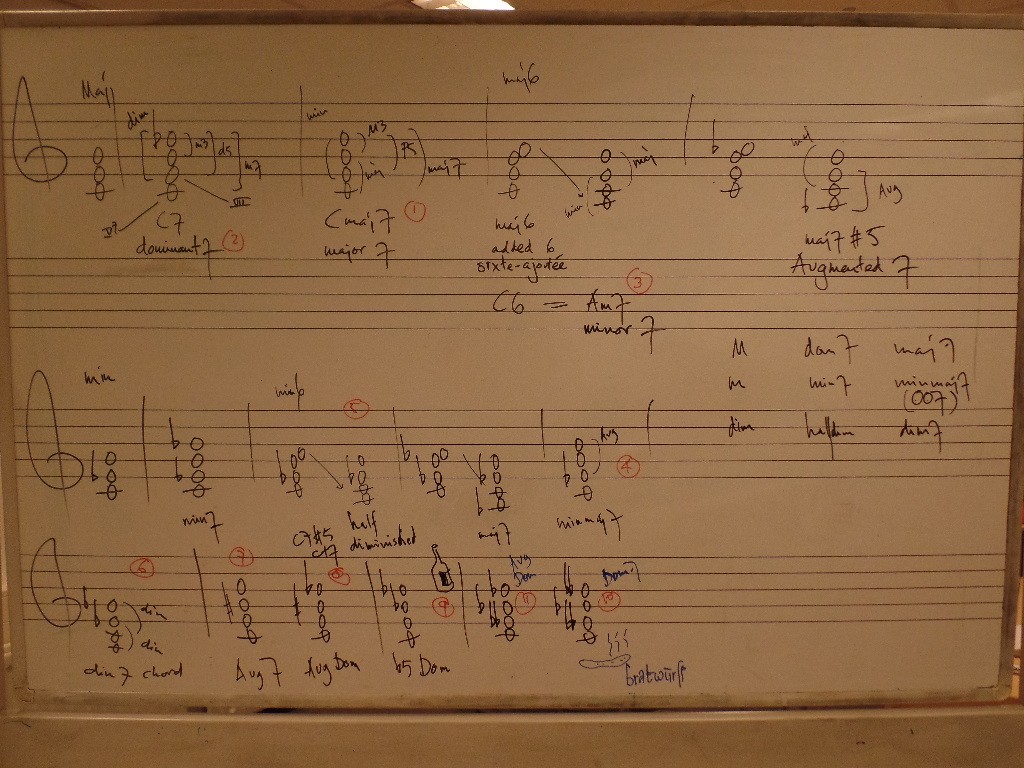 Maj
dim
m3
d5
m7
V7
VII
C7
dominant 7
2
min
M3
P5
min
maj7
Cmaj7
1
major 7
maj6
maj
min
maj6
added 6
sixte-ajoutée
3
C6 = Am7
minor 7
Aug
maj7 #5
Augmented 7
M dom7 maj7
m min7 minmaj7
(007)
dim halfdim dim7
min
min7
min6
5
half
diminished
maj7
Aug
4
minmaj7
6
din
din
dim7 chord
7
Aug7
C7#5
C+7
8
Aug Dom
9
b5 Dom
Aug
Dom
11
Dom7
10
bratwürst